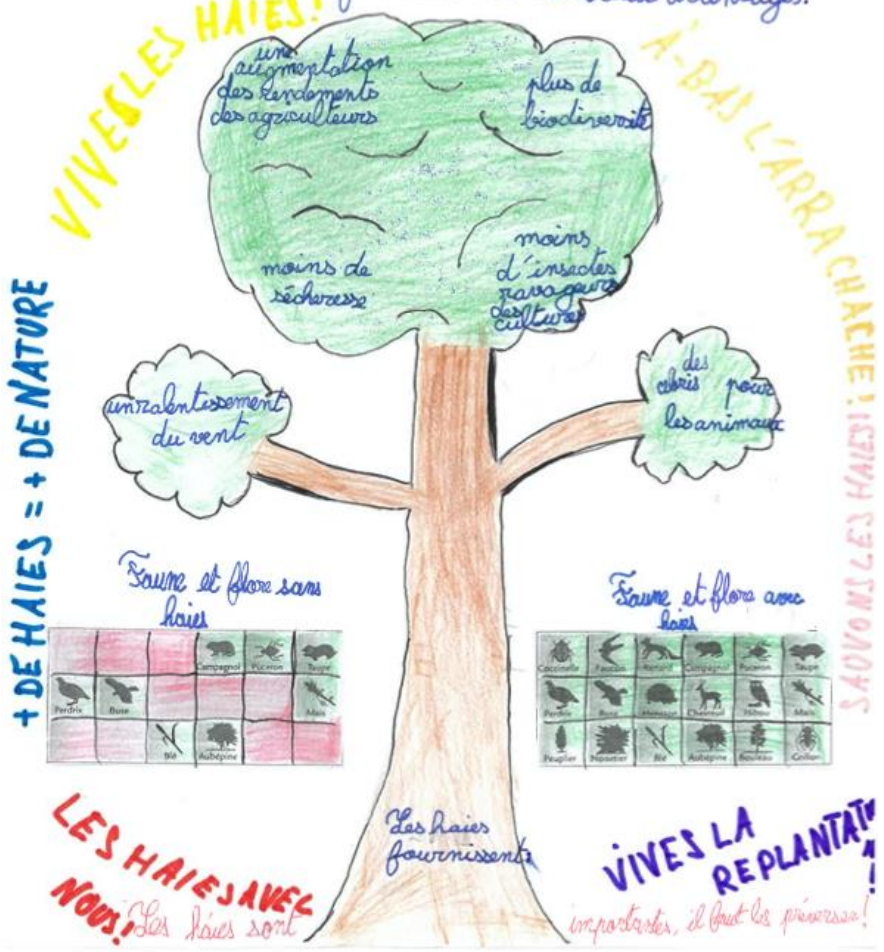 VIVES LES HAIES!
À-BAS L'ARRACHACHE!
une
augmentation
des rendements
des agriculteurs
plus de
biodiversité
moins de
sécheresse
moins
d'insectes
ravageurs
des
cultures
+ DE HAIES = + DE NATURE
un ralentissement
du vent
des
abris pour
les animaux
SAUVONS LES HAIES!
Faune et flore sans
haies
Campagnol Puceron Taupe
Perdrix Buse Maïs
Blé Aubépine
Faune et flore avec
haies
Coccinelle Faucon Renard Campagnol Puceron Taupe
Perdrix Buse Hérisson Chevreuil Hibou Maïs
Peuplier Noisetier Blé Aubépine Bouleau Grillon
Les haies
fournissent
LES HAIES AVEC
NOUS!
VIVES LA
REPLANTATION!
Les haies sont importantes, il faut les préserver!